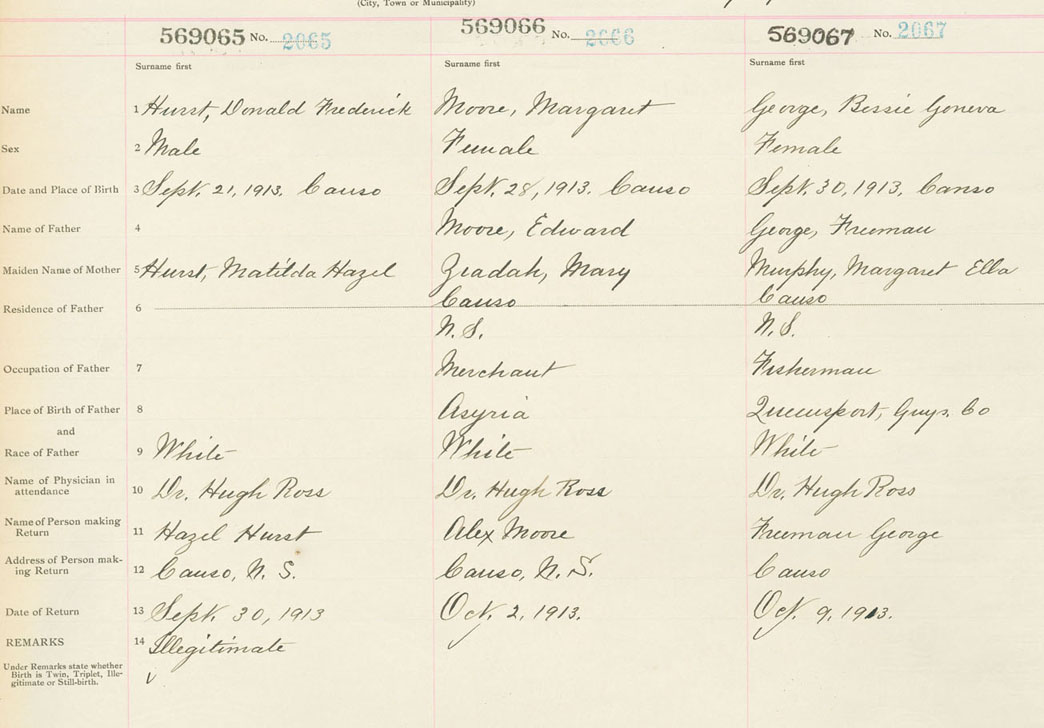 (City, Town or Municipality)
569065 No. 2065 569066 No. 2066 569067 No. 2067
Surname first Surname first Surname first
Name 1 Hurst, Donald Frederick Moore, Margaret George, Bessie Goneva
Sex 2 Male Female Female
Date and Place of Birth 3 Sept. 21, 1913. Canso Sept. 28, 1913. Canso Sept. 30, 1913. Canso
Name of Father 4 Moore, Edward George, Freeman
Maiden Name of Mother 5 Hurst, Matilda Hazel Ziadah, Mary Murphy, Margaret Ella
Residence of Father 6 Canso Canso
N.S. N.S.
Occupation of Father 7 Merchant Fisherman
Place of Birth of Father 8 Asyria Queensport, Guys. Co
and
Race of Father 9 White White White
Name of Physician in
attendance 10 Dr. Hugh Ross Dr. Hugh Ross Dr. Hugh Ross
Name of Person making
Return 11 Hazel Hurst Alex Moore Freeman George
Address of Person mak-
ing Return 12 Canso, N. S. Canso, N. S. Canso
Date of Return 13 Sept. 30, 1913 Oct. 2, 1913. Oct. 9, 1913.
REMARKS 14 Illegitimate
Under Remarks state whether
Birth is Twin, Triplet, Ille-
gitimate or Still-birth.